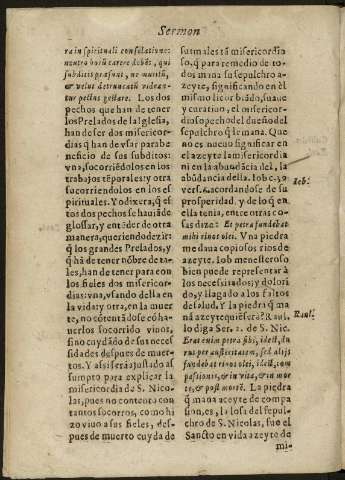 Sermon
ra in spirituali consolatione:
neutro horũ carere debẽt, qui
subditis præsunt, ne mutili,
& velut detruncati videan-
tur pectus gestare. Los dos
pechos que han de tener
los Prelados de la Iglesia,
han de ser dos misericor-
dias q̃ han de vsar para be
neficio de sus subditos:
vna, socorriẽdolos en los
trabajos tẽporales: y otra
socorriendolos en los es
pirituales. Yo dixera, q̃ es
tos dos pechos se hauiã de
glossar, y entẽder de otra
manera, queriendo dezir:
q̃ los grandes Prelados, y
q̃ hã de tener nõbre de ta-
les, han de tener para con
los fieles dos misericor-
dias: vna, vsando della en
la vida: y otra, en la muer
te, no cõtentãdose cõ ha-
uerlos socorrido viuos,
sino cuydãdo de sus neces
sidades despues de muer-
tos. Y assi serà ajustado al
sumpto para explicar la
misericordia de S. Nico-
las, pues no contento con
tantos socorros, como hi
zo viuo a sus fieles, des-
pues de muerto cuyda de
sus males tã misericordio
so, q̃ para remedio de to-
dos mana su sepulchro a-
zeyte, significando en èl
mismo licor blãdo, suaue
y curatiuo, el misericor-
dioso pecho del dueño del
sepulchro q̃ le mana. Que
no es nueuo significar en
el azeyte la misericordia
ni en la abundãcia del, la
abũdancia della. Iob c. 29
vers. 6. acordandose de su
prosperidad, y de lo q̃ en
ella tenia, entre otras co-
sas dize: Et petra fundebat
mihi riuos olei. Vna piedra
me daua copiosos rios de
azeyte. Iob menesteroso
bien puede representar à
los necessitados; y dolori
do, y llagado a los faltos
de salud. Y la piedra q̃ ma
na azeyte quiẽ serà? Raul.
lo diga Ser. 2. de S. Nic.
Erat enim petra sibi, idest, du
rus per austeritatem, sed alijs
fundebat riuos olei, idest, com
passionis, & in vita, & in mor
te, & post mortẽ. La piedra
q̃ mana azeyte de compa
sion, es, la losa del sepul-
chro de S. Nicolas, fue el
Sancto en vida azeyte de
mi-
Iob.
Raul.